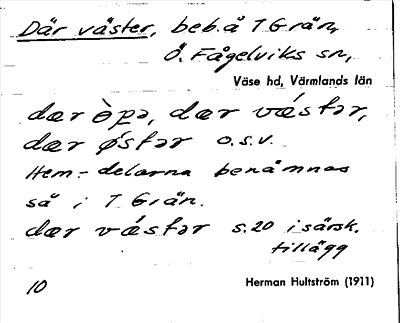 Där väster, beb. å T. Grän,
Ö. Fågelviks sn,
Väse hd, Värmlands län
dær òpə, dær vǻstər,
dær ǿstər o.s.v.
Hem-delarna benämnas
så i T. Grän.
dær vǻstər s. 20 i särsk.
tillägg
10 Herman Hultström (1911)